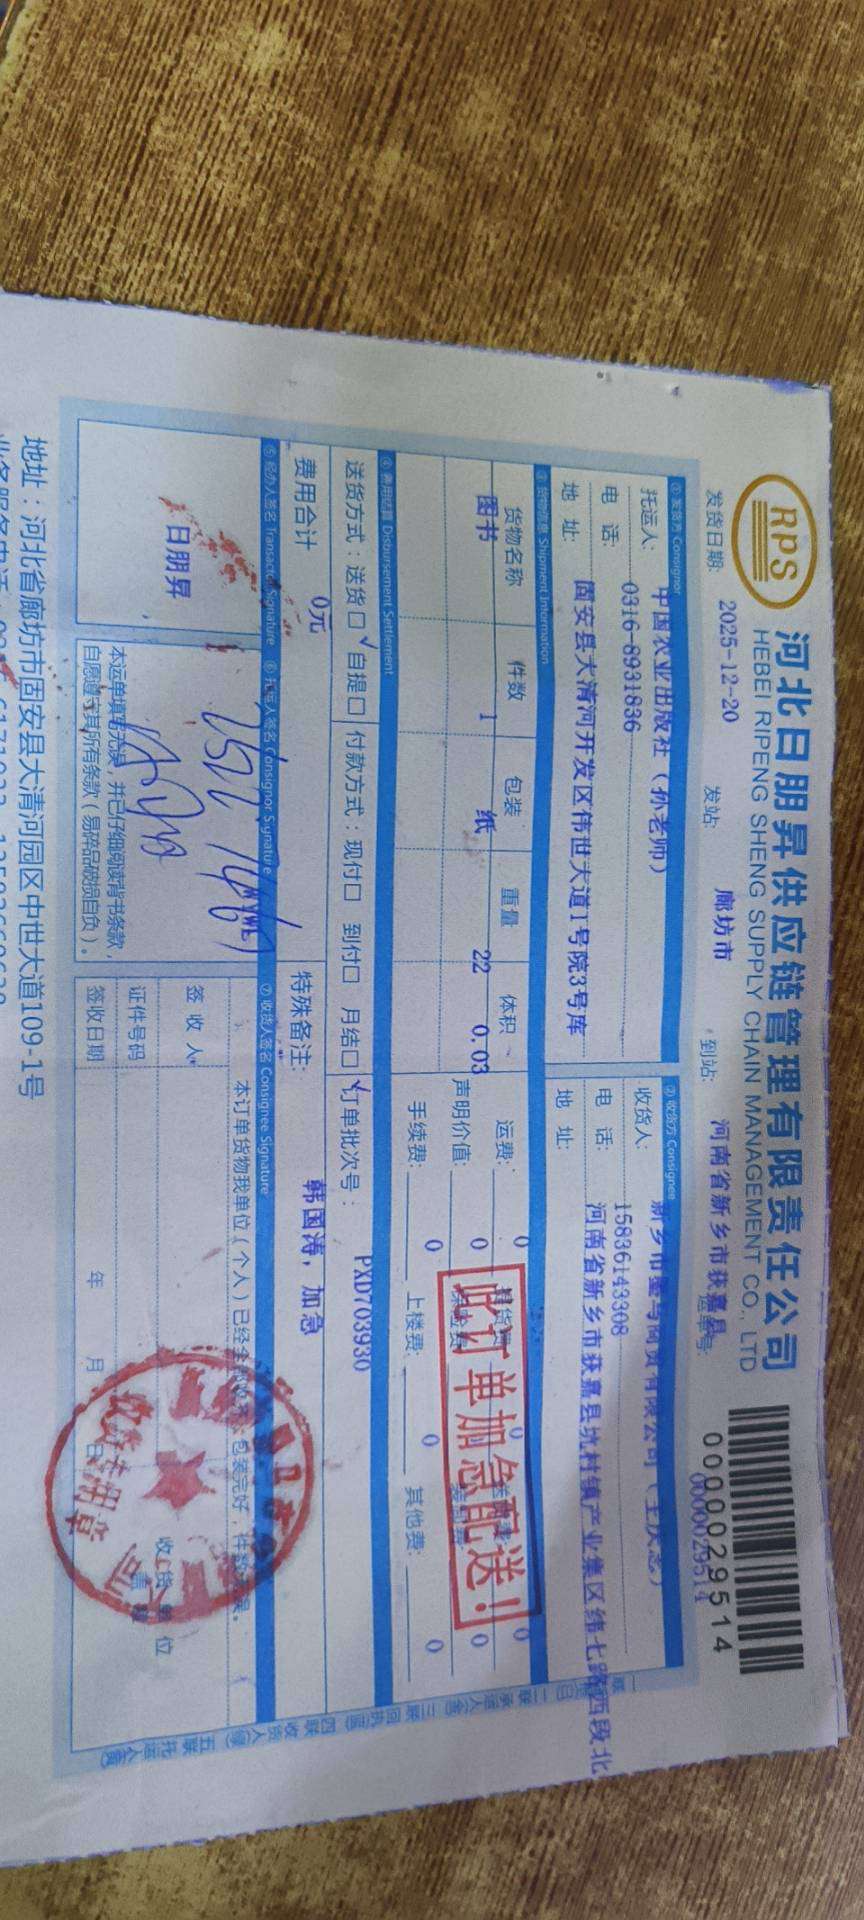 RPS
河北日朋昇供应链管理有限责任公司
HEBEI RIPENG SHENG SUPPLY CHAIN MANAGEMENT CO., LTD
0000029514
发货日期: 2025-12-20 发站: 廊坊市 到站: 河南省新乡市获嘉县 运单号: 0000029514
① 发货方 Consignor
托运人: 中国农业出版社（孙老师）
电 话: 0316-8931836
地 址: 固安县大清河开发区伟世大道1号院3号库
② 收货方 Consignee
收货人: 新乡市墨马商贸有限公司
电 话: 15836143308
地 址: 河南省新乡市获嘉县亢村镇产业集区纬七路西段北
③ 货物信息 Shipment Information
货物名称 件数 包装 重量 体积
图书 1 纸 22 0.03
运费: 0 0 0
声明价值: 0 0
手续费: 0 上楼费: 0 其他费: 0
此订单加急配送!
④ 费用结算 Disbursement Settlement
送货方式：送货□ 自提□ 付款方式：现付□ 到付□ 月结□ 订单批次号： PXD703930
费用合计 0元 特殊备注: 韩国涛，加急
⑤ 经办人签名 Transactor Signature
日朋昇
⑥ 托运人签名 Consignor Signature
本运单填写无误，并已仔细阅读背书条款，
自愿遵守其所有条款（易碎品破损自负）。
⑦ 收货人签名 Consignee Signature
本订单货物我单位（个人）已经全部收到，包装完好，件数无误。
签 收 人
证件号码
签收日期 年 月 日
收 货 单 位
盖 章
收货专用章
一联 二联承运人 三联回执 四联收货人 五联托运人
地址：河北省廊坊市固安县大清河园区中世大道109-1号